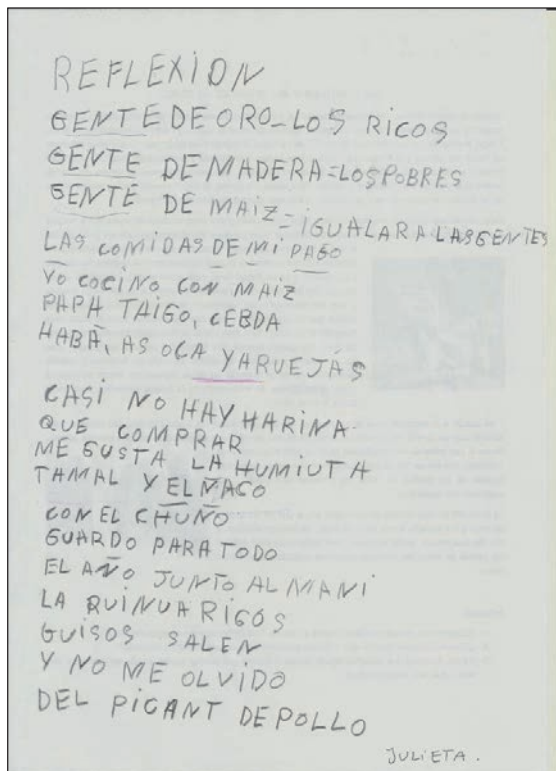 REFLEXION
GENTE DE ORO_LOS RICOS
GENTE DE MADERA=LOS POBRES
GENTE DE MAIZ=IGUALAR A LAS GENTES
LAS COMIDAS DE MI PAGO
YO COCINO CON MAIZ
PAPA TAIGO, CEBDA
HABA, AS OCA Y ARUEJAS
CASI NO HAY HARINA
QUE COMPRAR
ME GUSTA LA HUMIUTA
TAMAL Y EL ÑACO
CON EL CHUÑO
GUARDO PARA TODO
EL AÑO JUNTO AL MANI
LA QUINUA RIGOS
GUISOS SALEN
Y NO ME OLVIDO
DEL PICANT DE POLLO
JULIETA.